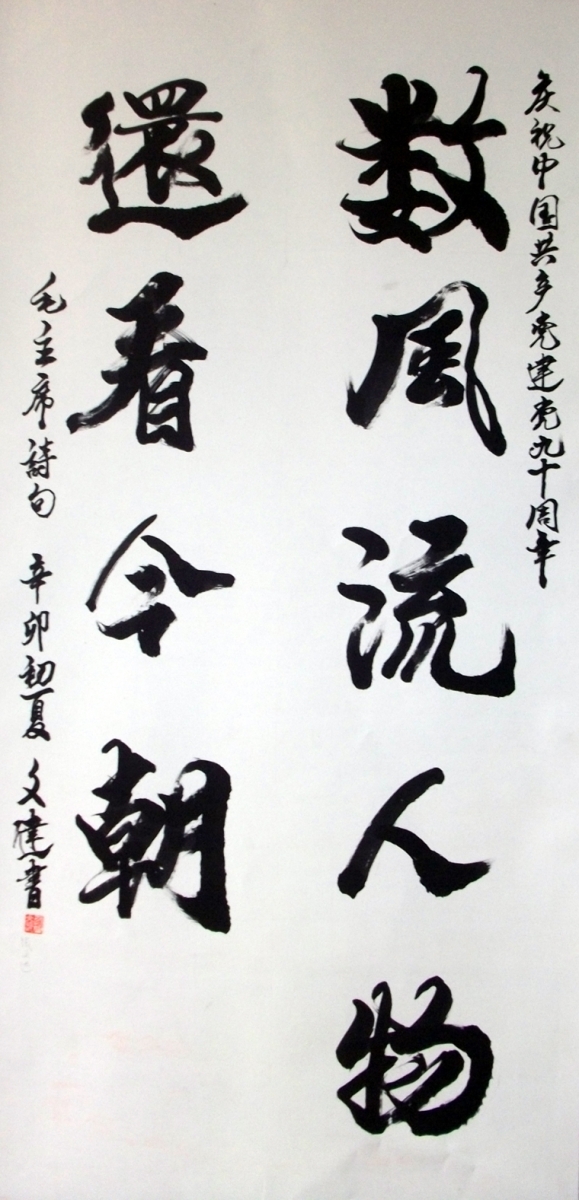 庆祝中国共产党建党九十周年
数风流人物
還看今朝
毛主席詩句 辛卯初夏 文建書